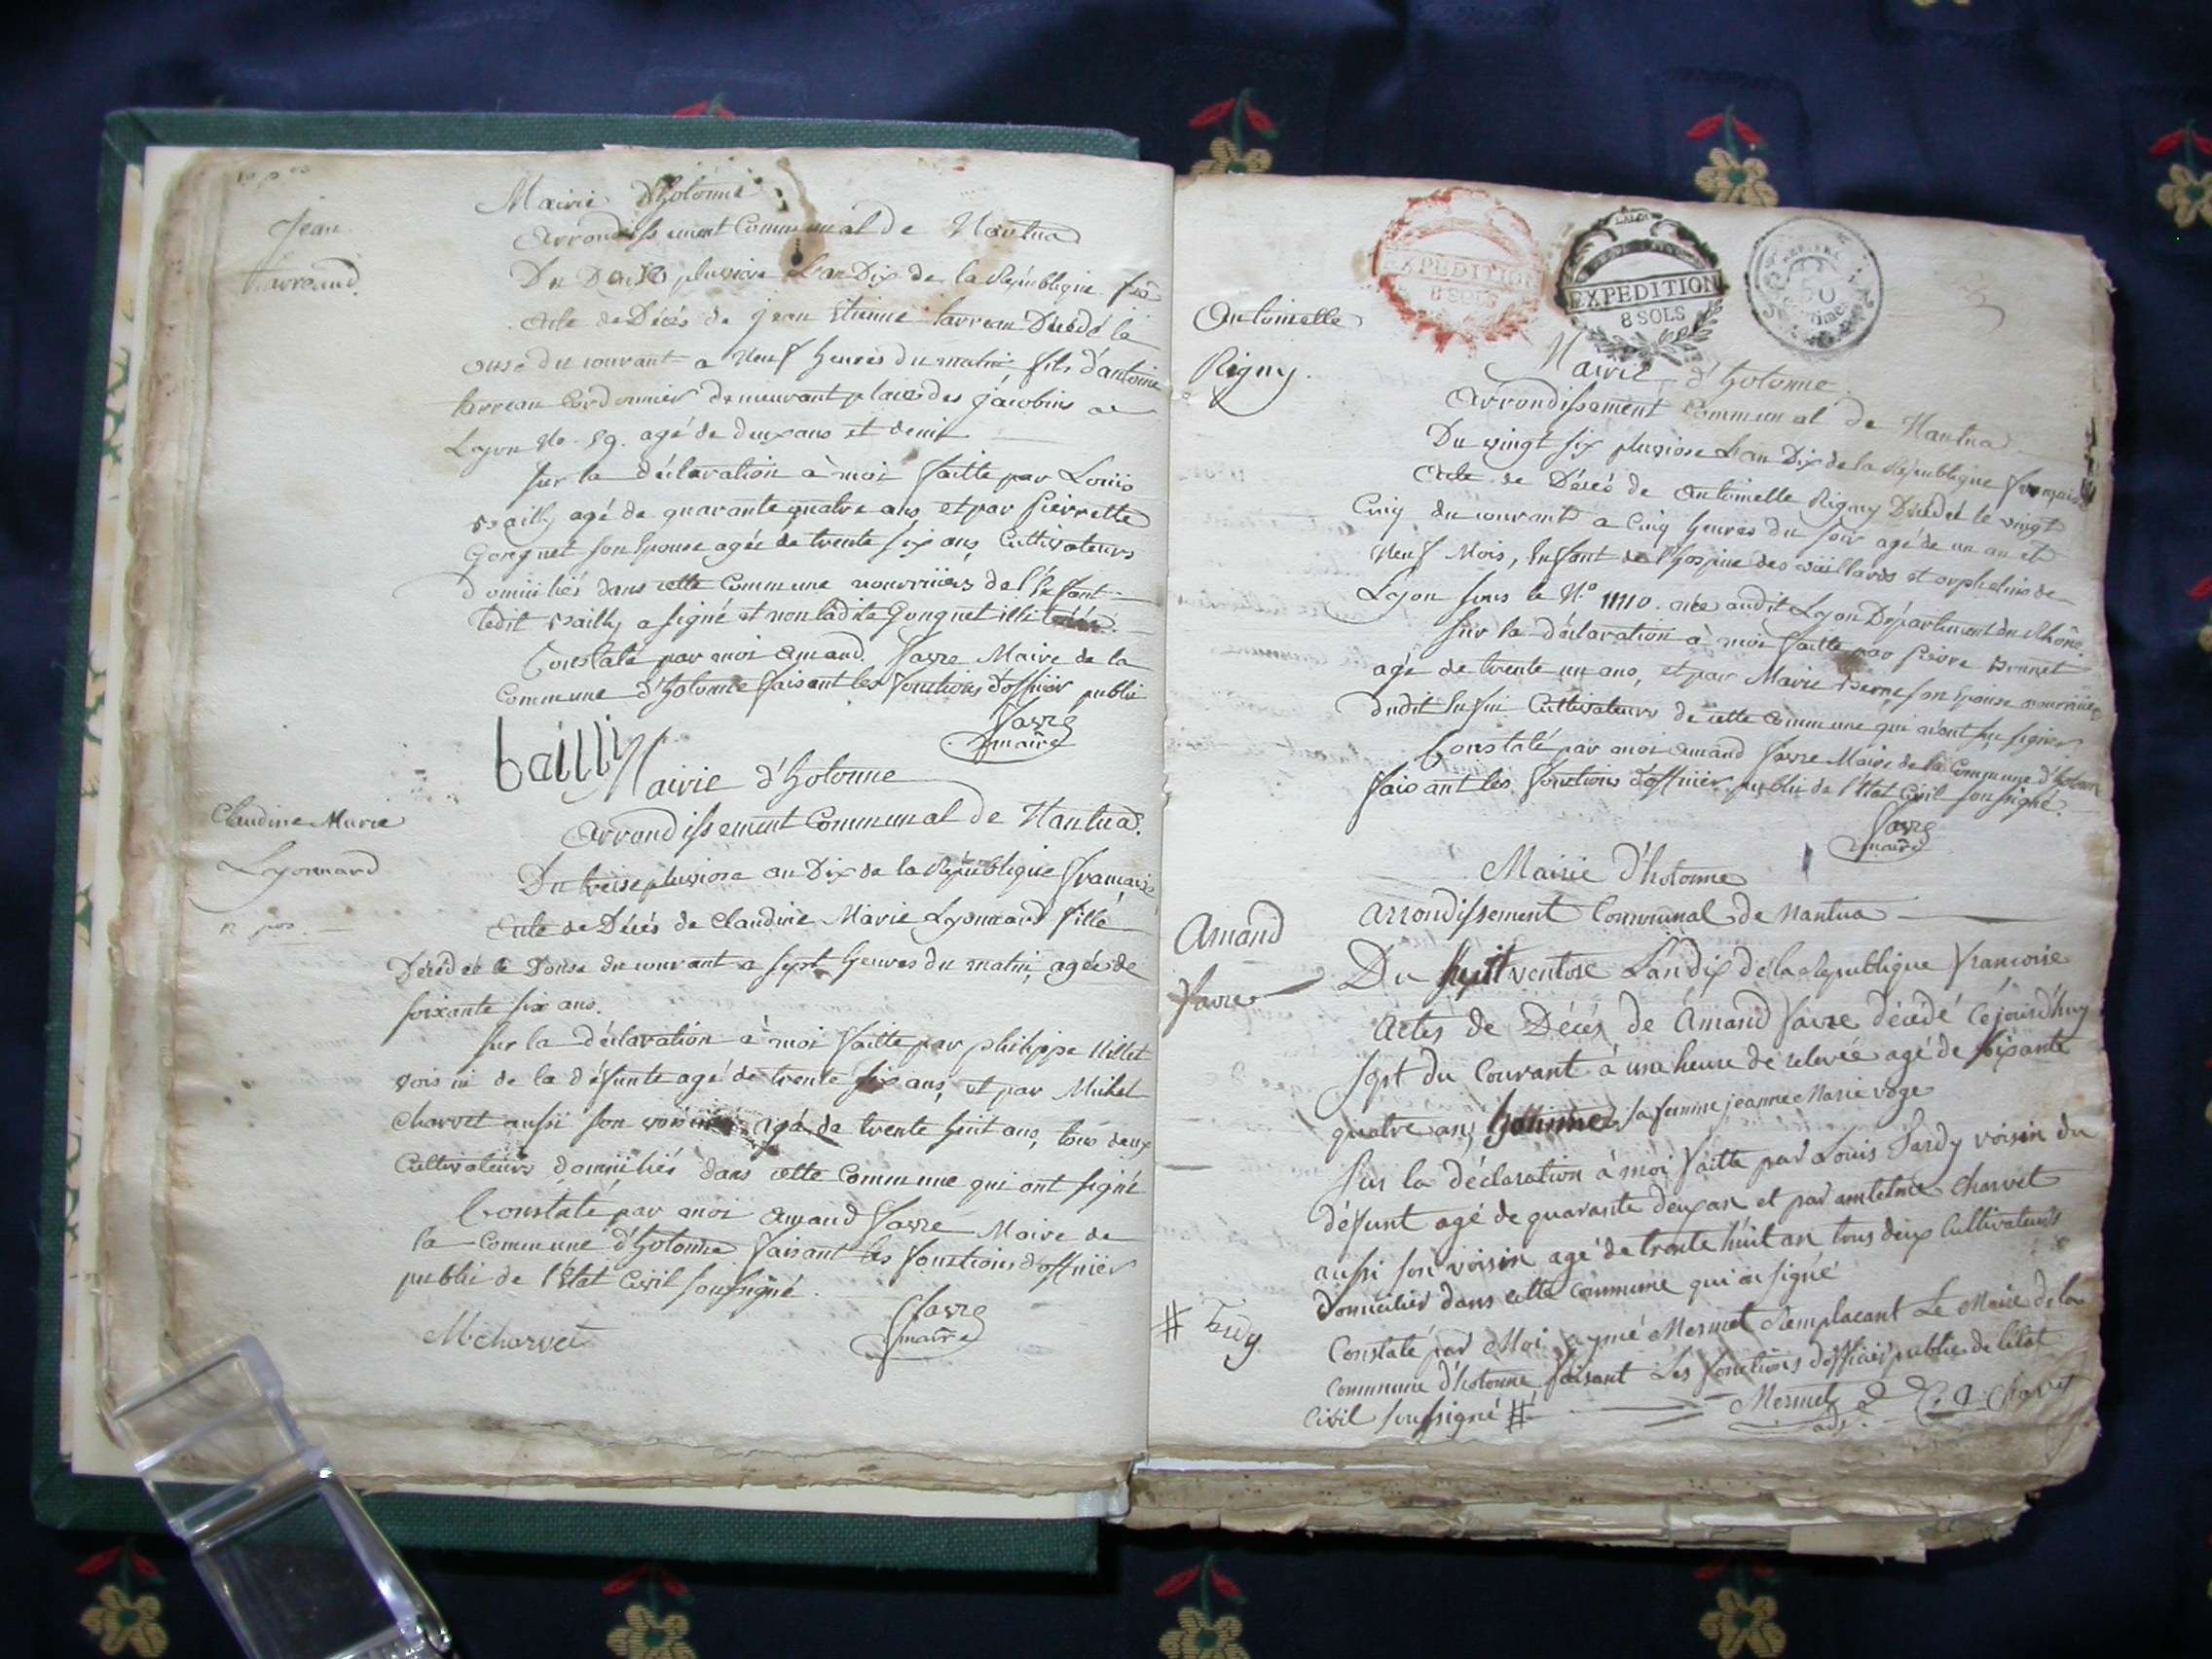 Jean
Mairie d'hotonne
arrondissement Communal de Nantua
Du Douze pluviose L'an Dix de la République
Acte de Décés de jean Etienne Décédé le
onze du courant a Neuf heures du matin, fils d'antoine
Cordonnier demeurant place des jacobins a
Lyon No. 59. agé de deux ans et demi
sur la déclaration à moi faitte par Louis
Bailly agé de quarante quatre ans et par pierrette
son Epouse agée de trente six ans, Cultivateurs
Domiciliés dans cette Commune nourriciers de l'Enfant
ledit Bailly a signé et non ladite illitérée.
Constaté par moi amand favre Maire de la
Commune d'hotonne faisant les fonctions d'officier public
favre
maire
bailli
Claudine Marie
Lyonnard
Mairie d'hotonne
arrondissement Communal de Nantua.
Du treize pluviose an Dix de la République française
Acte de Décés de Claudine Marie Lyonnard fille
Décédée le Douze du courant a sept heures du matin, agée de
soixante six ans.
sur la déclaration à moi faitte par philippe Millet
voisin de la défunte agé de trente six ans, et par Michel
Charvet aussi son voisin agé de trente huit ans, tous deux
Cultivateurs domiciliés dans cette Commune qui ont signé
Constaté par moi amand favre Maire de
la Commune d'hotonne faisant les fonctions d'officier
public de l'Etat Civil soussigné.
favre
maire
M charvet
EXPEDITION
8 SOLS
EXPEDITION
8 SOLS
50
Antoinette
Rigny.
Mairie d'hotonne.
arrondissement Communal de Nantua
Du vingt six pluviose L'an Dix de la République française
Acte de Décés de Antoinette Rigny Décédée le vingt
Cinq du courant a Cinq heures du soir agé de un an et
Neuf Mois, Enfant de l'hospice des vieillards et orphelins de
Lyon sous le N.º 11110. née audit Lyon Département du Rhône.
sur la déclaration à moi faitte par pierre Brunet
agé de trente un ans, et par Marie Berne son Epouse nourriciers
dudit Enfan Cultivateurs de cette Commune qui n'ont su signer
Constaté par moi amand favre Maire de la Commune d'hotonne
faisant les fonctions d'officier public de l'Etat Civil soussigné.
favre
maire
Amand
favre
Mairie d'hotonne
arrondissement Communal de Nantua
Du huit ventose L'an dix de la republique francoise
Actes de Décés de Amand favre décédé Cejourd'huy
sept du Courant à une heure de relevée agé de soixante
quatre ans, sa femme jeanne Marie voge
Sur la déclaration à moi faitte par Louis Tardy voisin du
défunt agé de quarante deux an et par antelme Charvet
aussi son voisin agé de trente huit an tous deux Cultivateurs
Domicilier dans cette commune qui on signé
Constaté par Moi aymé Mermet Remplacant Le Maire de la
commune d'hotonne faisant Les fonctions d'officier public de l'état
Civil soussigné #
# Tardy
Mermet
adj.
Charvet